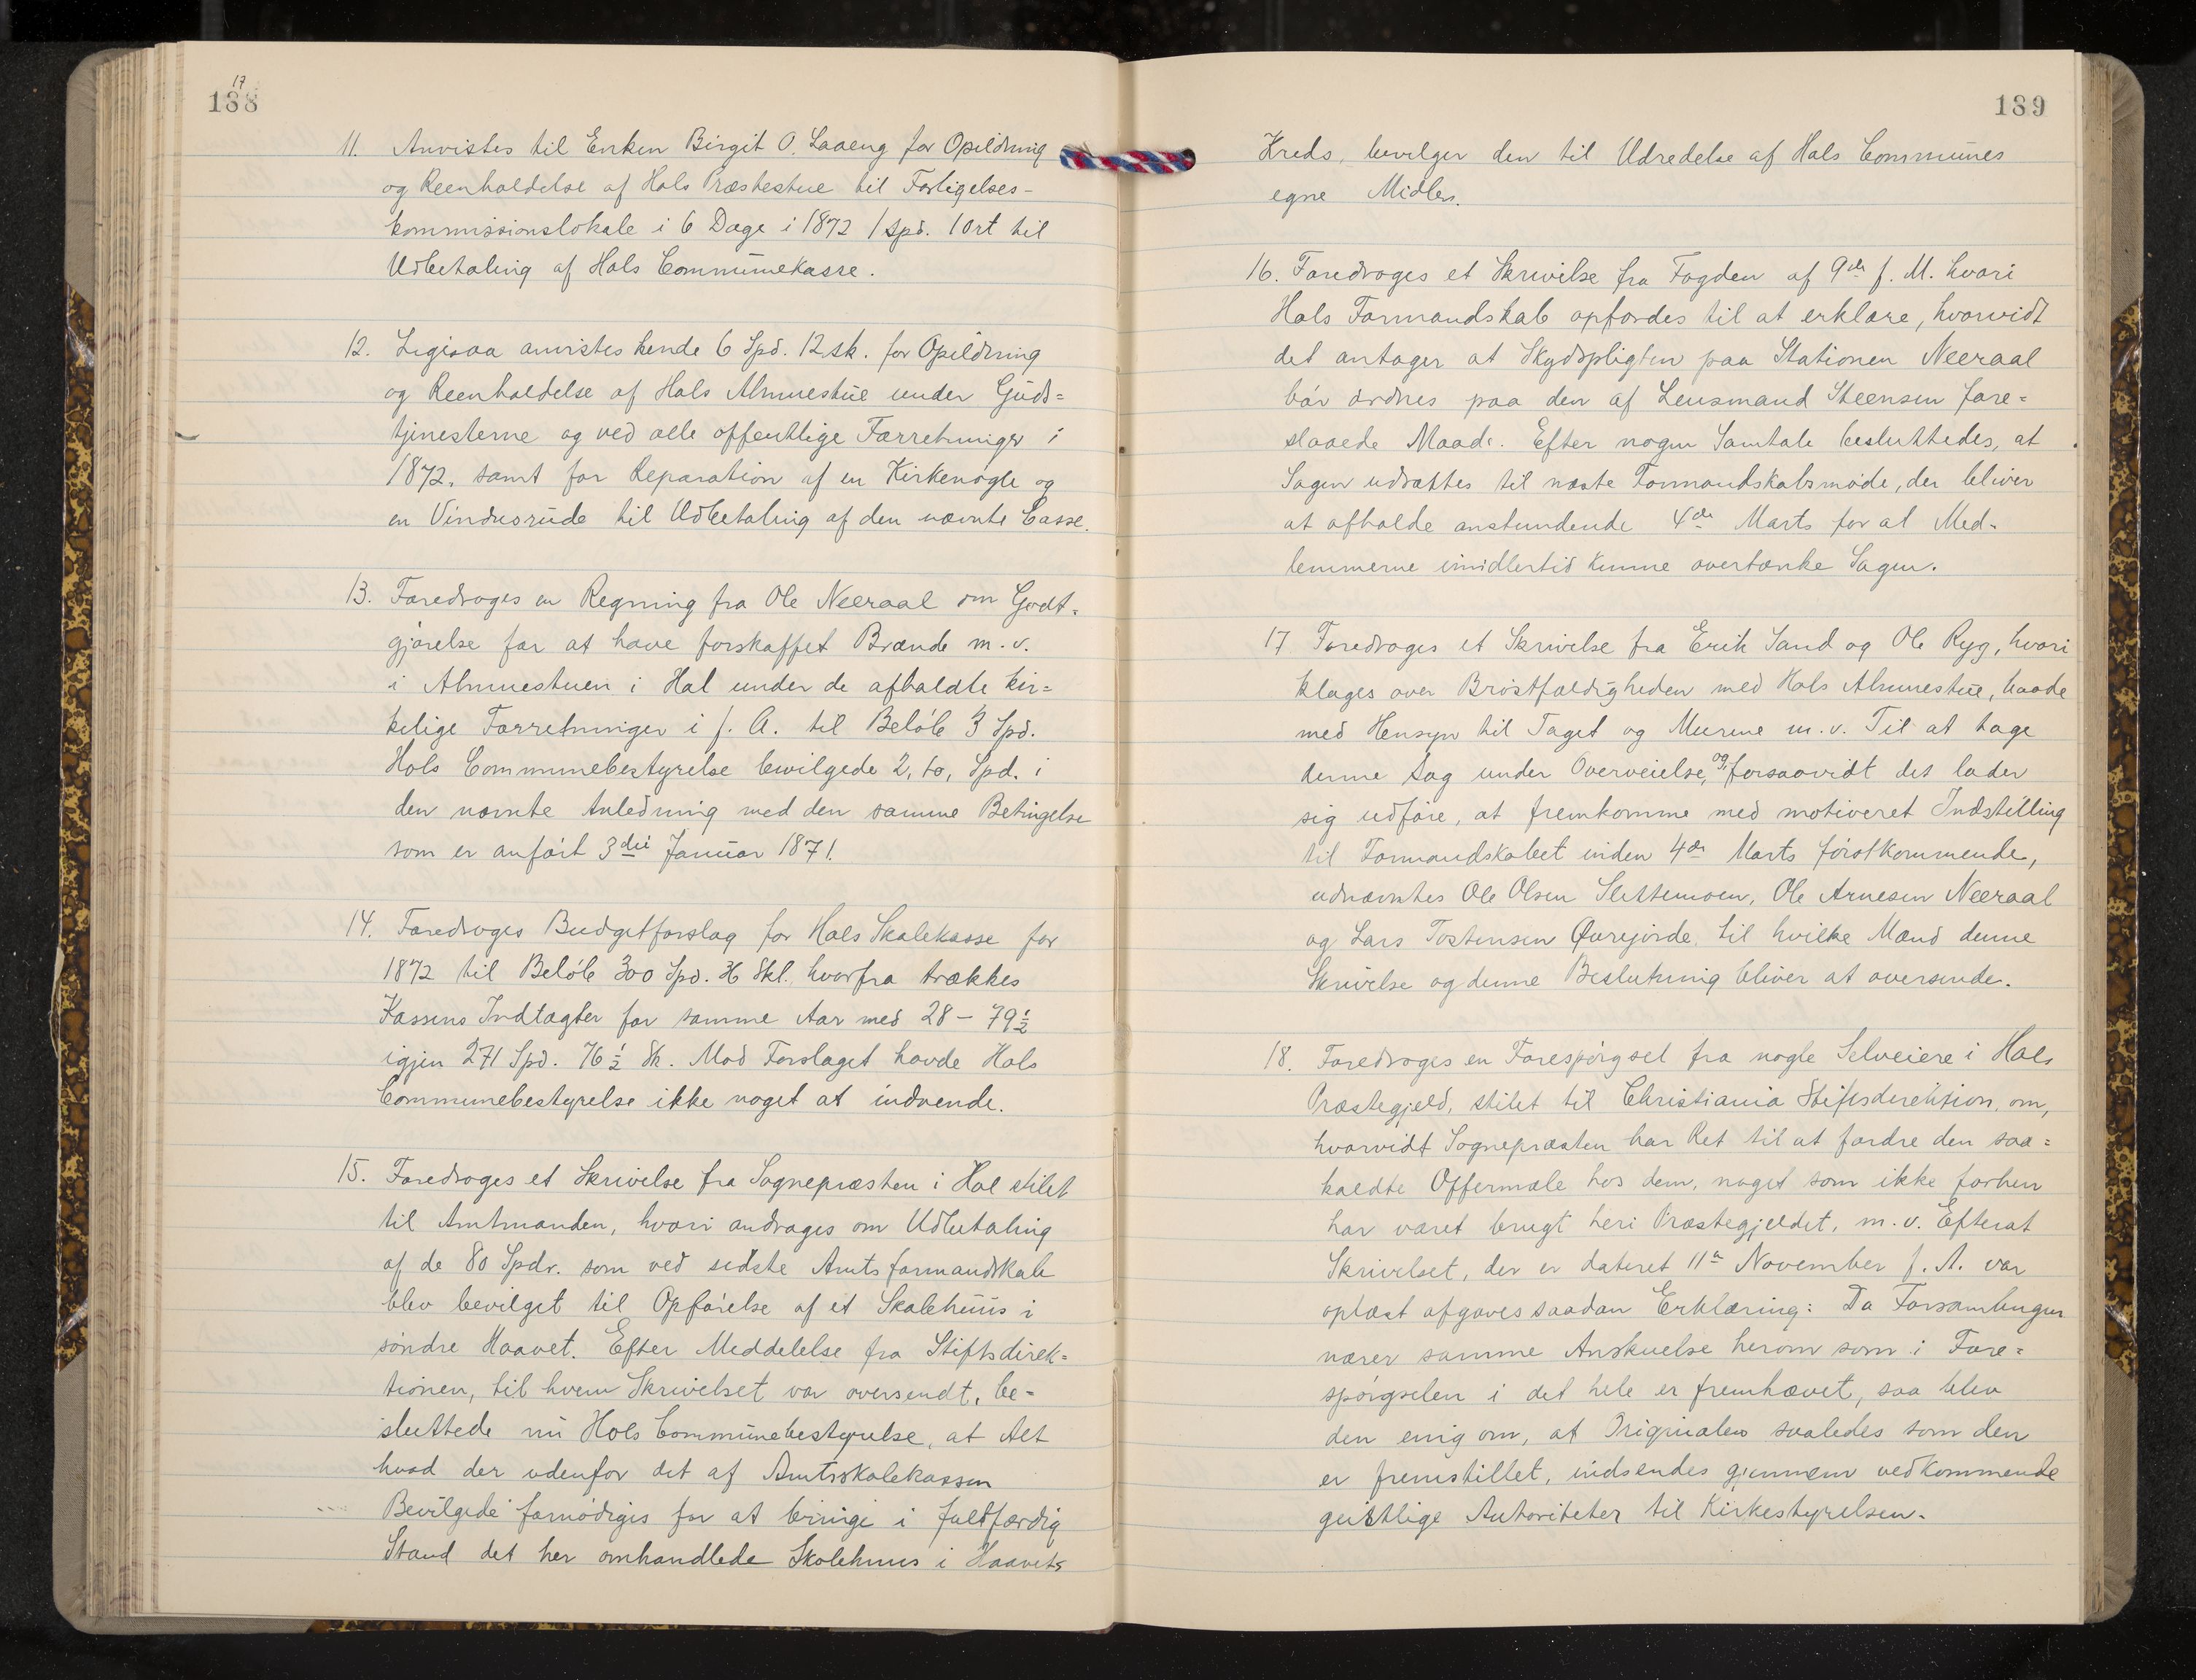 17
188
11. Anvistes til Enken Birgit O. Laaeng for Opildning
og Reenholdelse af Hols Præstestue til Forligelses-
kommissionslokale i 6 Dage i 1872 1 spd. 1 ort til
Udbetaling af Hols Communekasse.
12. Ligesaa anvistes hende 6 Spd. 12 sk. for Opildning
og Reenholdelse af Hols Almuestue under Guds=
tjenesterne og ved alle offentlige Forretninger i
1872. samt for Reparation af en Kirkenøgle og
en Vinduesrude til Udbetaling af den nævnte Casse.
13. Foredroges en Regning fra Ole Neeraal om Godt=
gjørelse for at have forskaffet Brænde m.v.
i Almuestuen i Hol under de afholdte kir=
kelige Forretninger i f. A. til Beløb 3 Spd.
Hols Communebestyrelse bevilgede 2, 60, Spd. i
den nævnte Anledning med den samme Betingelse
som er anført 3die Januar 1871.
14. Foredroges Budgetforslag for Hols Skolekasse for
1872 til Beløb 300 Spd. 36 Skl. hvorfra trækkes
Kassens Indtægter for samme Aar med 28 - 79½
igjen 271 Spd. 76½ Sk. Mod Forslaget havde Hols
Communebestyrelse ikke noget at indvende.
15. Foredroges et Skrivelse fra Sognepræsten i Hol stilet
til Amtmanden, hvori andrages om Udbetaling
af de 80 Spdr. som ved sidste Amtsformandskab
blev bevilget til Opførelse af et Skolehuus i
søndre Haavet. Efter Meddelelse fra Stiftsdirek=
tionen, til hvem Skrivelset var oversendt, be=
sluttede nu Hols Communebestyrelse, at Alt
hvad der udenfor det af Amtsskolekassen
Bevilgede fornødiges for at bringe i fuldfærdig
Stand det her omhandlede Skolehuus i Haavets
189
Kreds, bevilger den til Udredelse af Hols Communes
egne Midler.
16. Foredroges et Skrivelse fra Fogden af 9de f. M. hvori
Hols Formandskab opfordes til at erklære, hvorvidt
det antager at Skydspligten paa Stationen Neeraal
bør ordnes paa den af Lensmand Steensen fore=
slaaede Maade. Efter nogen Samtale besluttedes, at
Sagen udsættes til næste Formandskabsmøde, der bliver
at afholde anstundende 4de Marts for at Med-
lemmerne imidlertid kunne overtænke Sagen.
17 Foredroges et Skrivelse fra Erik Sand og Ole Ryg, hvori
klages over Brøstfældigheden med Hols Almuestue, baade
med Hensyn til Taget og Murene m.v. Til at tage
denne Sag under Overveielse, og, forsaavidt det lader
sig udføre, at fremkomme med motiveret Indstilling
til Formandskabet inden 4de Marts førstkommende,
udnævntes Ole Olsen Slettemoen, Ole Arnesen Neeraal
og Lars Tostensen Øvrejorde, til hvilke Mænd denne
Skrivelse og denne Beslutning bliver at oversende.
18. Foredroges en Forespørgsel fra nogle Selveiere i Hols
Præstegjeld, stilet til Christiania Stiftsdirektion, om,
hvorvidt Sognepræsten har Ret til at fordre den saa=
kaldte Offermæle hos dem, noget som ikke forhen
har været brugt heri Præstegjeldet, m.v. Efterat
Skrivelset, der er dateret 11te November f. A. var
oplæst afgaves saadan Erklæring: Da Forsamlingen
nærer samme Anskuelse herom som i Fore=
spørgselen i det hele er fremhævet, saa blev
den enig om, at Originalen saaledes som den
er fremstillet, indsendes gjennem vedkommende
geistlige Autoriteter til Kirkestyrelsen.